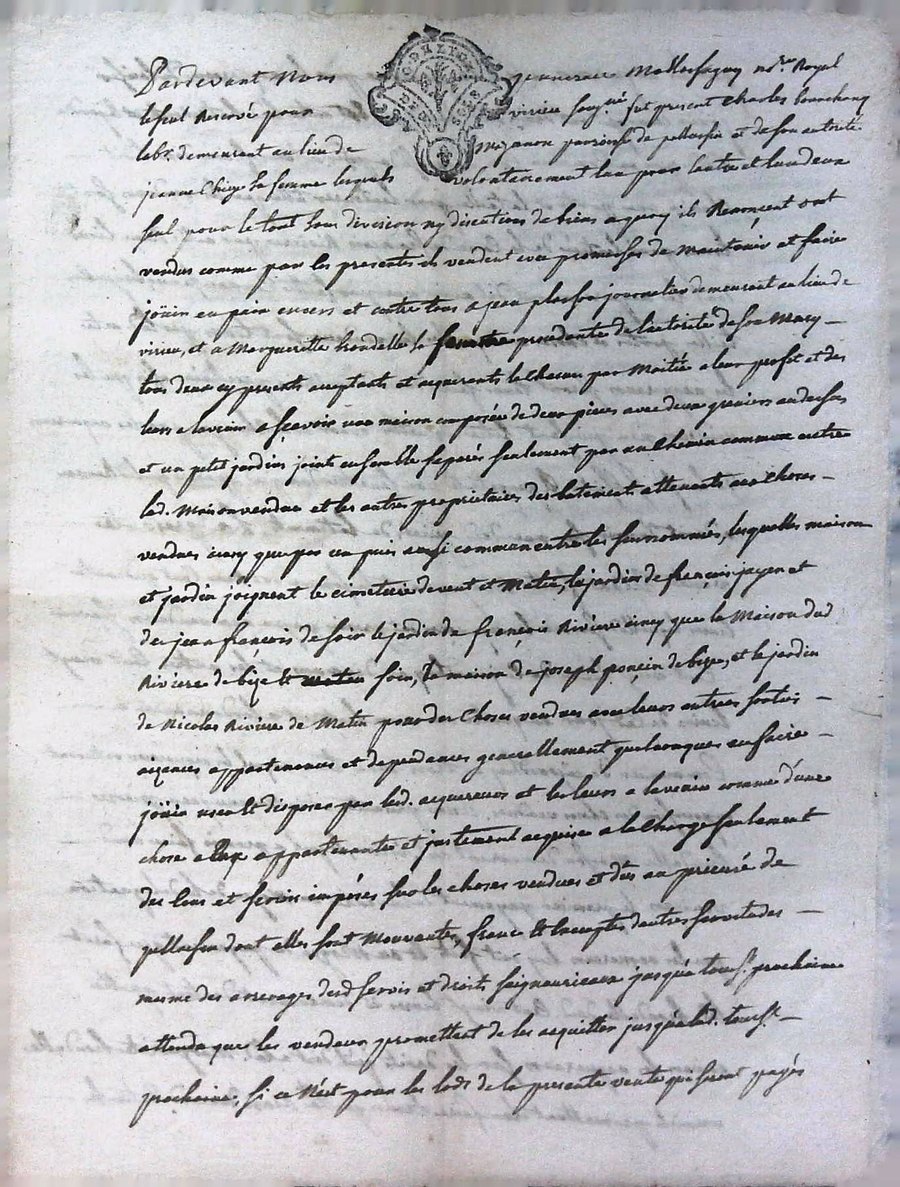 Pardevant Nous jeanne Mallassagny no.re Royal
le seul Reservé pour virieu soug.né fut present Charles
lab.r demeurant au lieu de Mezanon parroisse de pellussin et de son autorité
jeanne Chize sa femme lesquels volontairement l'un pour l'autre et l'un deux
seul pour le tout sans division ny discutions de biens a quoy ils Renoncent ont
vendus comme par les presentes ils vendent avec promesses de Maintenir et faire
joüir en paix envers et contre tous a jean journalier demeurant au lieu de
virieu, et a Margueritte sa femme procedante de l'autorité de son Mary —
tous deux cy presents acceptants et acquerants le Chacun par Moitié a leur profit et des
leurs a lavenir asçavoir une maison composée de deux pieces avec deux greniers au dessus
et un petit jardin joints ensemble separés seulement par un Chemin commun entre
lad. Maison vendue et les autres proprietaires des batiments attenants aux Choses —
vendues ainsy que par un puis aussi commun entre les susnommés, lesquelles maison
et jardin joignent le cimetiere devent et Matin, le jardin de françois jayen et
de jean françois de soir le jardin de françois Riviere ainsy que la Maison dud
Riviere de bize et soir, la maison de joseph ponçin de bize, et le jardin
de Nicolas Riviere de Matin pour des Choses vendues avec leurs entrées sorties —
aizances appartenances et dependances generallement quelconques en faire —
joüir user et disposer par lesd. acquereurs et les leurs a lavenir comme d'une
chose a Eux appartenantes et justement acquise a la Charge seulement
des Cens et servis imposés sur les choses vendues et dûs au prieuré de
pellussin dont elles sont Mouvantes, franc et exemptes d'autres servitudes —
mesme des arrerages desd servis et droits seigneuriaux jusqu'a touss.t prochaine
attendu que les vendeurs promettent de les acquitter jusqu'a lad. touss.t —
prochaine, si ce N'est pour les lods de la presente vente qui seront payés